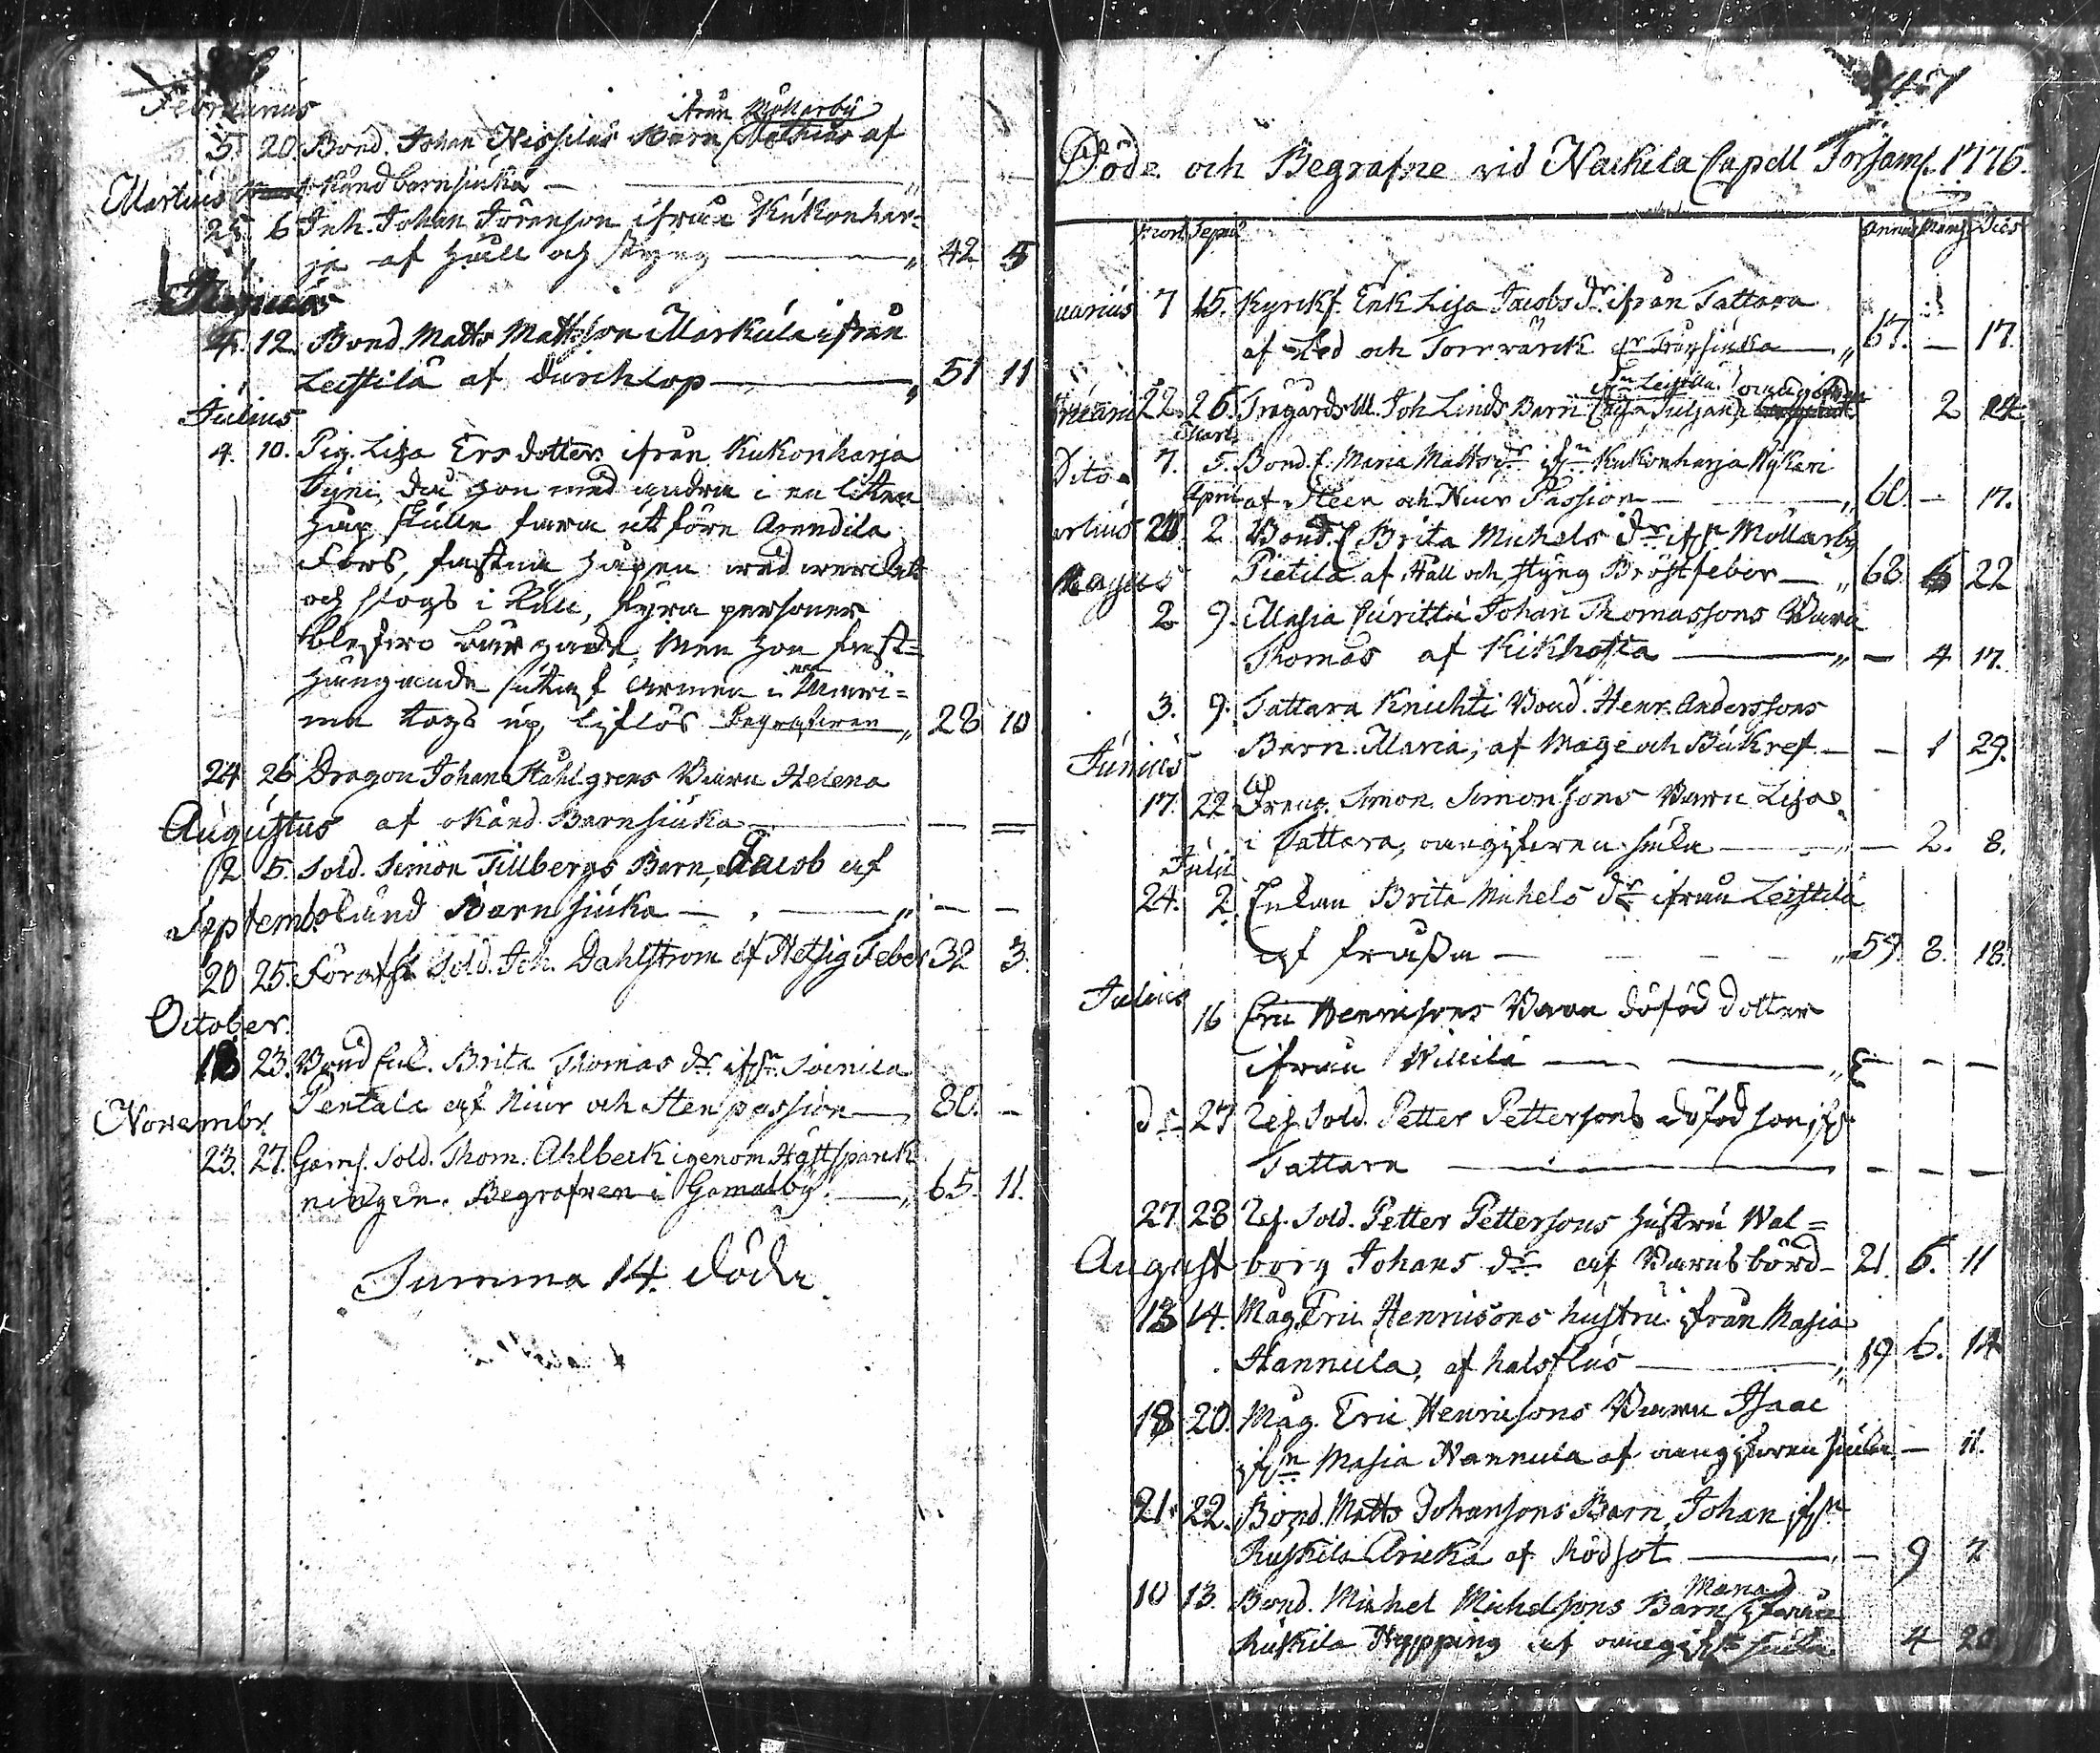 Februarius
ifrån Mollarby
5. 20. Bond. Johan Nissilas Barn Mathias af
okänd barnsiuka — „ — —
Martius
25. 6 Inh. Johan Jöranson ifrån Kukonhar-
ja af Håll och styng — „ 42 5
Majus
4. 12. Bond. Matts Mattsson Markula ifrån
Leistilä af durchlop — „ 51 11
Julius
4. 10. Pig. Lisa Ersdotter ifrån Kukonharja
Pyni, då hon med andra i en liten
håp skulle fara utföre Arendila
Fors, fastna håpen wid
och slogs i Kull, fyra personer
blefwo bärgade, Men hon fast-
hängande i
ma togs up liflös Begrafwen „ 28 10
24 26 Dragon Johan Stahlgrens Barn Helena
af okänd Barnsiuka — — —
Augustus
2 5. Sold. Simon Tillbergs Barn, Jacob af
okänd Barnsiuka — „ — —
Septemb.
20 25. Förafsk. Sold. Joh. Dahlström af Hetsig Feber 32 3.
October.
18 23. Bond Enk. Brita Thomas dr. ifrn. Soinila
Pentala af Niur och Stenpassion — 80. —
Novembr.
23. 27. Gaml. Sold. Thom. Ahlbeck igenom Hästspark
ningen. Begrafven i Gamalby. — „ 65. 11.
Summa 14. döde.
157
Döde och Begrafne vid Nackila Capell Församl. 1776.
Mort. Sepult. Annus Mens. Dies
uarius 7 15. Kyrckf. Enk. Lisa Jacobs dr. ifrån Tattara
af Led och Torrvärck — „ 67. — 17.
22. 26. Trägårds M. Joh. Linds Barn Lisa Juliana 2 14
ifrn Leistilä omgifven
Mart.
Dito 7. 5. Bond. f. Maria Matts dr. ifrn Kukonharja Nykari
af Steen och Niur Passion — „ 60. — 17.
April
artius 20 2 Bond. f. Brita Michels dr. ifr. Mollarby
Pietilä af Håll och styng Bröstfeber — „ 68. 6 22
Majus
2 9. Masia Euritta Johan Thomassons Barn
Thomas af Kikhosta — „ — 4 17.
3. 9. Tattara Knichti Bond. Henr. Anderssons
Barn Maria, af Mage och Bukref — — 1 29.
Junius
17. 22 Dreng. Simon Simonsons Barn Lisa
i Tattara, omgifwen siuka — „ — 2. 8.
Julii
24. 2. Enkan Brita Michels dr. ifrån Leistilä
af fråssa — „ 59 8. 18.
Julius
16 Eric Henricsons Barn dödfödd dotter
ifrån Willilä — „ — — —
do 27 Res. Sold. Petter Pettersons dödfödd son, ifr.
Tattara — — — —
27 28 Res. Sold. Petter Pettersons hustru Wal=
borg Johans dr. af Barnsbörd — 21. 6. 11
August
13 14. Måg. Eric Henricsons hustru ifrån Masia
Hannula, af halsfluss — „ 19 6. 14
18 20. Måg. Eric Henricsons Barn Isaac
ifrn Masia Hannula af omgifwen siuka — 11.
21. 22. Bond. Matts Johansons Barn, Johan ifrn
Ruskila Pricka af Rödsot — „ — 9 2
10 13. Bond. Michel Michelsons Barn Maria ifrån
Ruskila Nypping af omgifn siuka 4 20